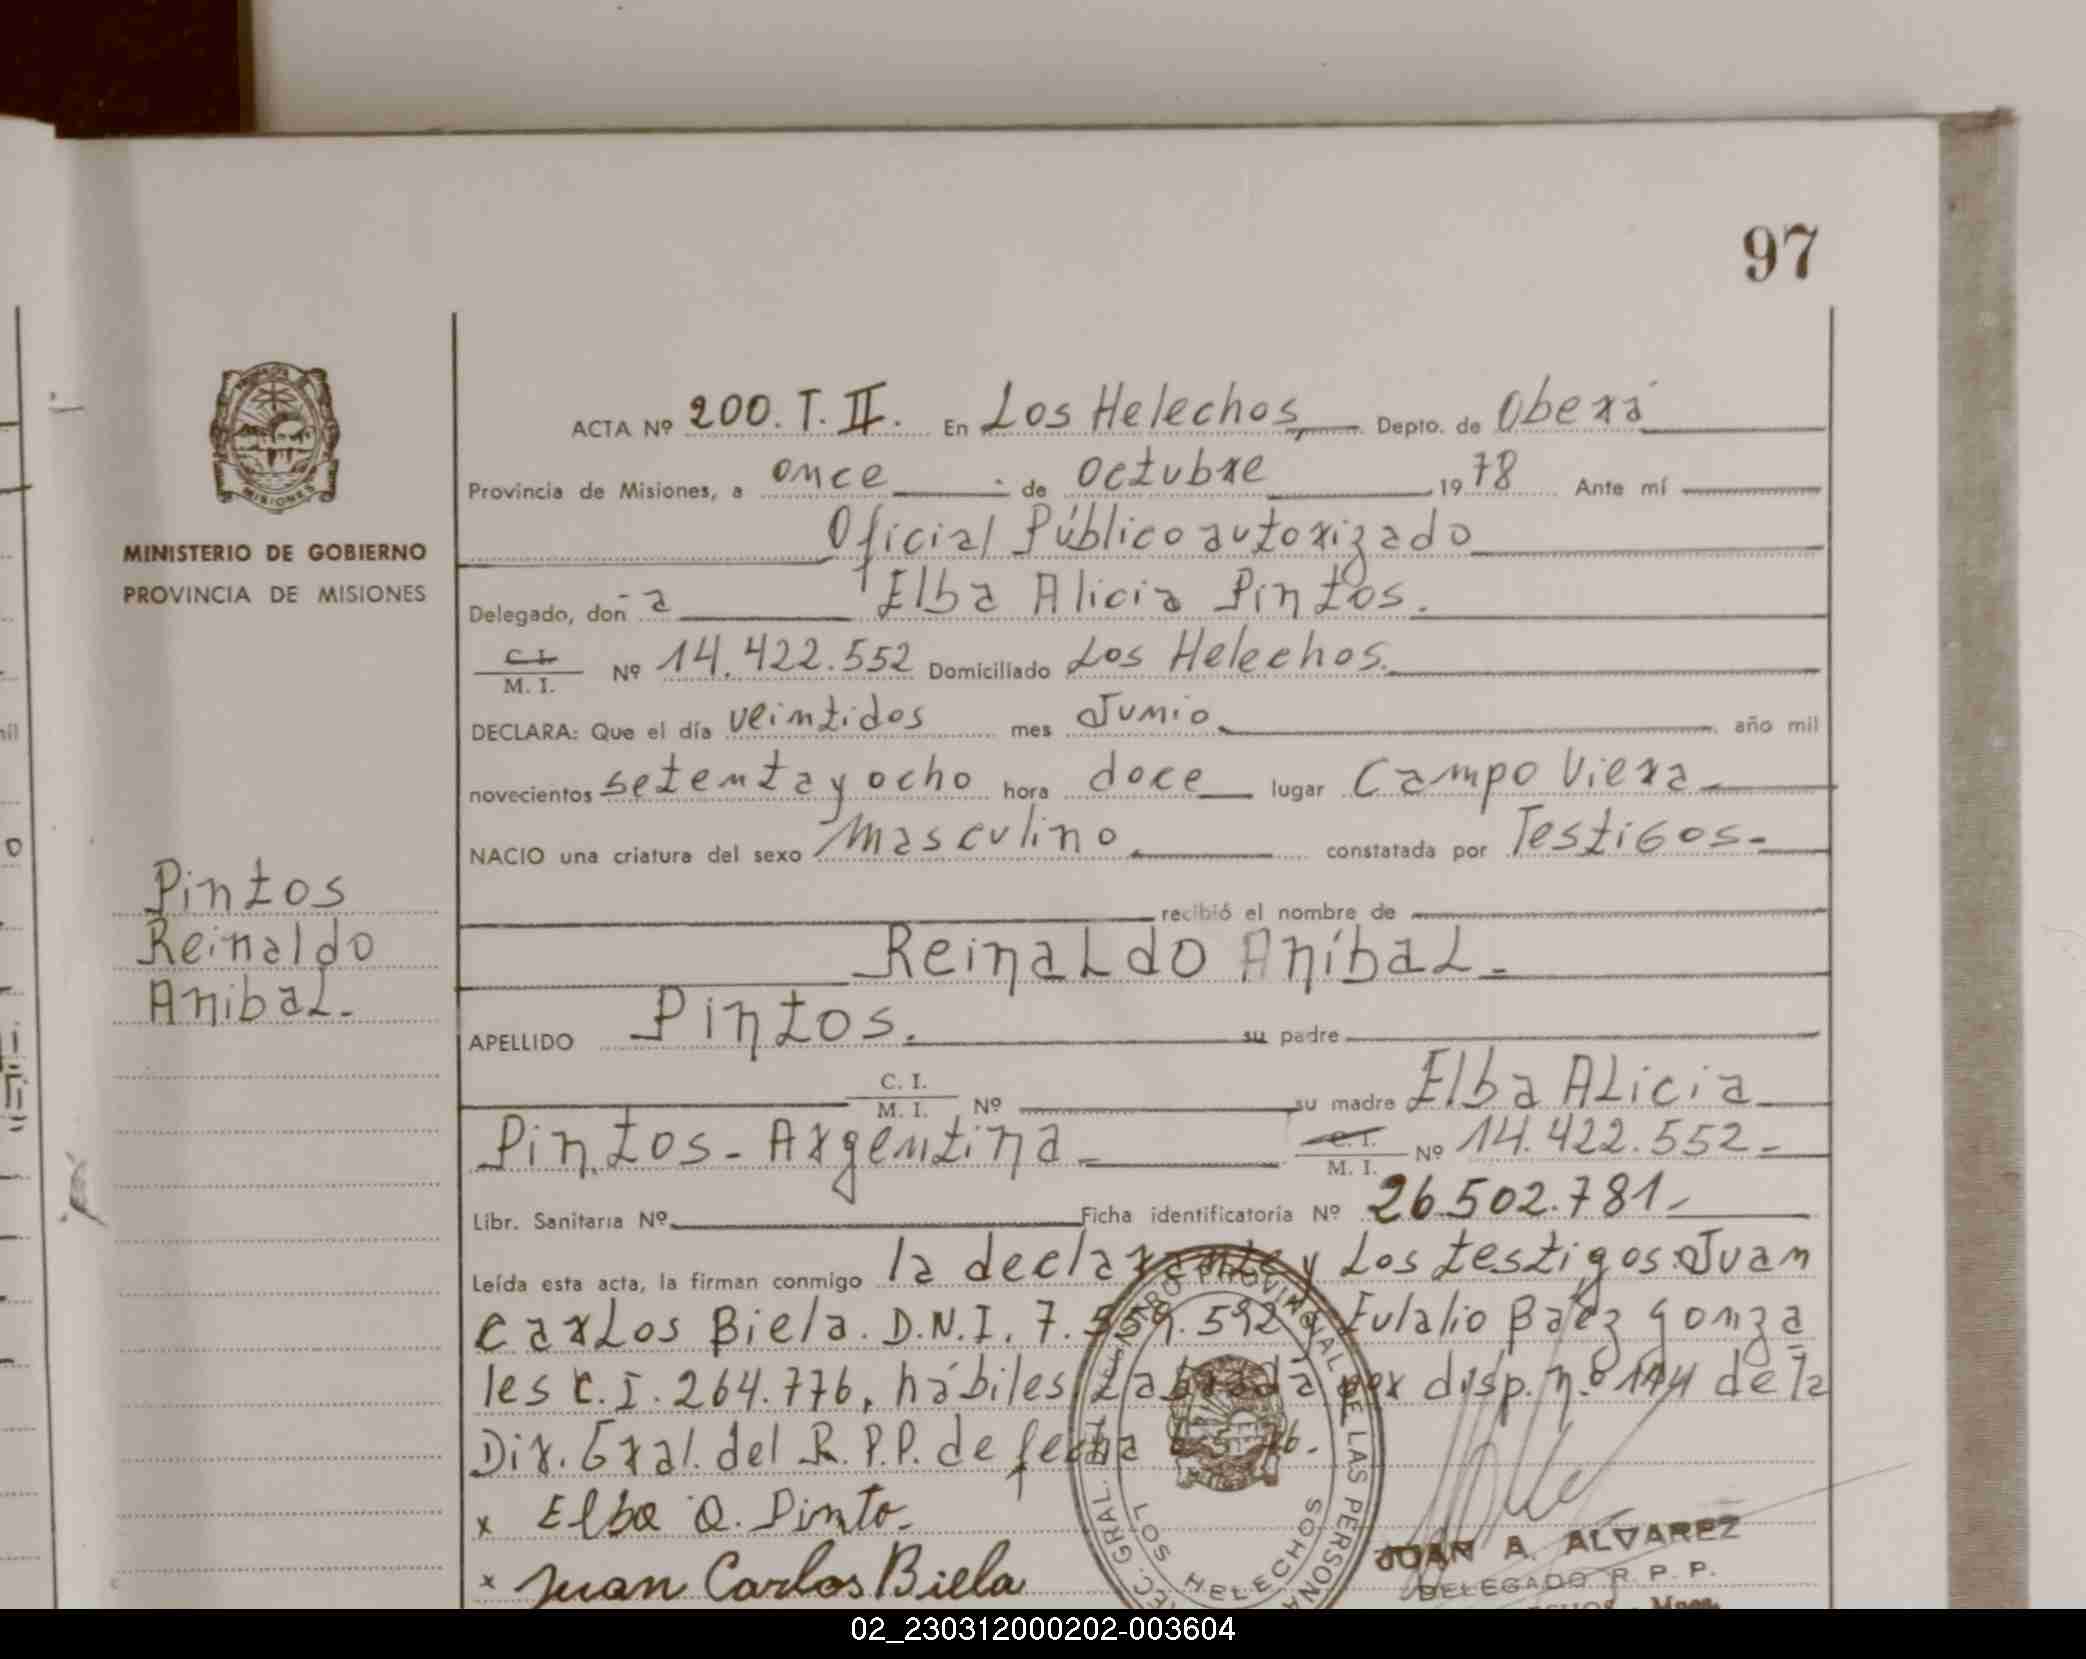 97
ACTA Nº 200. T. II. En Los Helechos, Depto. de Oberá
Provincia de Misiones, a once de octubre 1978 Ante mí
Oficial Público autorizado
MISIONES
MINISTERIO DE GOBIERNO
PROVINCIA DE MISIONES
Delegado, don-a Elba Alicia Pintos.
C. I.
M. I. Nº 14.422.552 Domiciliado Los Helechos.
DECLARA: Que el día veintidos mes Junio año mil
novecientos setenta y ocho hora doce lugar Campo Viera
NACIO una criatura del sexo masculino constatada por Testigos-
recibió el nombre de
Reinaldo Aníbal-
Pintos
Reinaldo
Anibal-
APELLIDO Pintos. su padre
C. I.
M. I. Nº su madre Elba Alicia
Pintos - Argentina - C. I.
M. I. Nº 14.422.552-
Libr. Sanitaria Nº Ficha identificatoria Nº 26.502.781-
Leída esta acta, la firman conmigo la declarante y Los testigos: Juan
Carlos Biela. D.N.I. 7. 592 y Eulalio Baéz gonza
les C.I. 264.776, hábiles. Labrada por disp. n.º 144 de la
Dir. Gral. del R.P.P. de fecha 76.
x Elba A. Pinto-
x Juan Carlos Biela
PROVINCIAL DE LAS PERSONA
LOS HELECHOS
JUAN A. ALVAREZ
DELEGADO R. P. P.
02_230312000202-003604